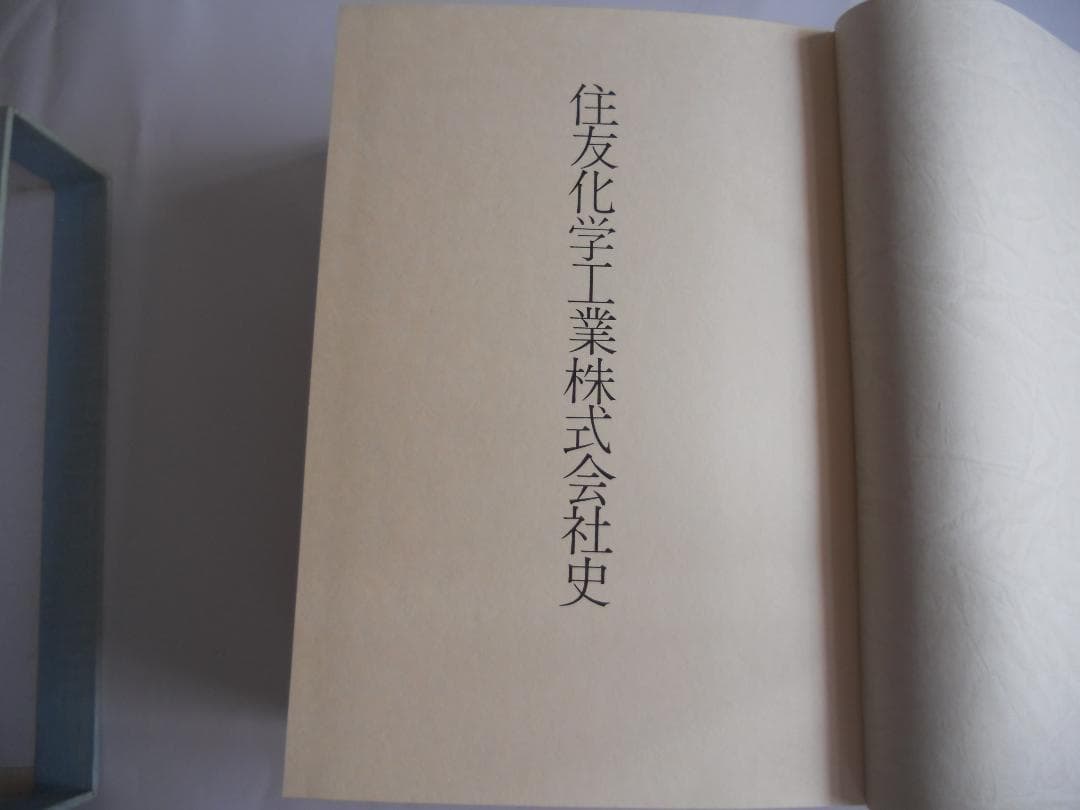 住友化学工業株式会社史